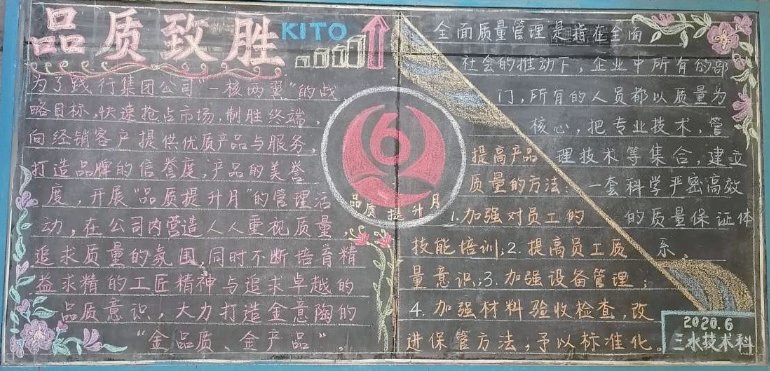 品质致胜
KITO
为了践行集团公司“一核两翼”的战
略目标,快速抢占市场,制胜终端,
向经销客户提供优质产品与服务,
打造品牌的信誉度,产品的美誉
度,开展“品质提升月”的管理活
动,在公司内营造人人重视质量
追求质量的氛围,同时不断培育精
益求精的工匠精神与追求卓越的
品质意识,大力打造金意陶的
“金品质、金产品”。
6
品质提升月
全面质量管理是指在全面
社会的推动下,企业中所有的部
门,所有的人员都以质量为
核心,把专业技术,管
理技术等集合,建立
一套科学严密高效
的质量保证体
系。
提高产品
质量的方法:
1.加强对员工的
技能培训;2.提高员工质
量意识;3.加强设备管理;
4.加强材料验收检查,改
进保管方法,予以标准化.
2020.6
三水技术科